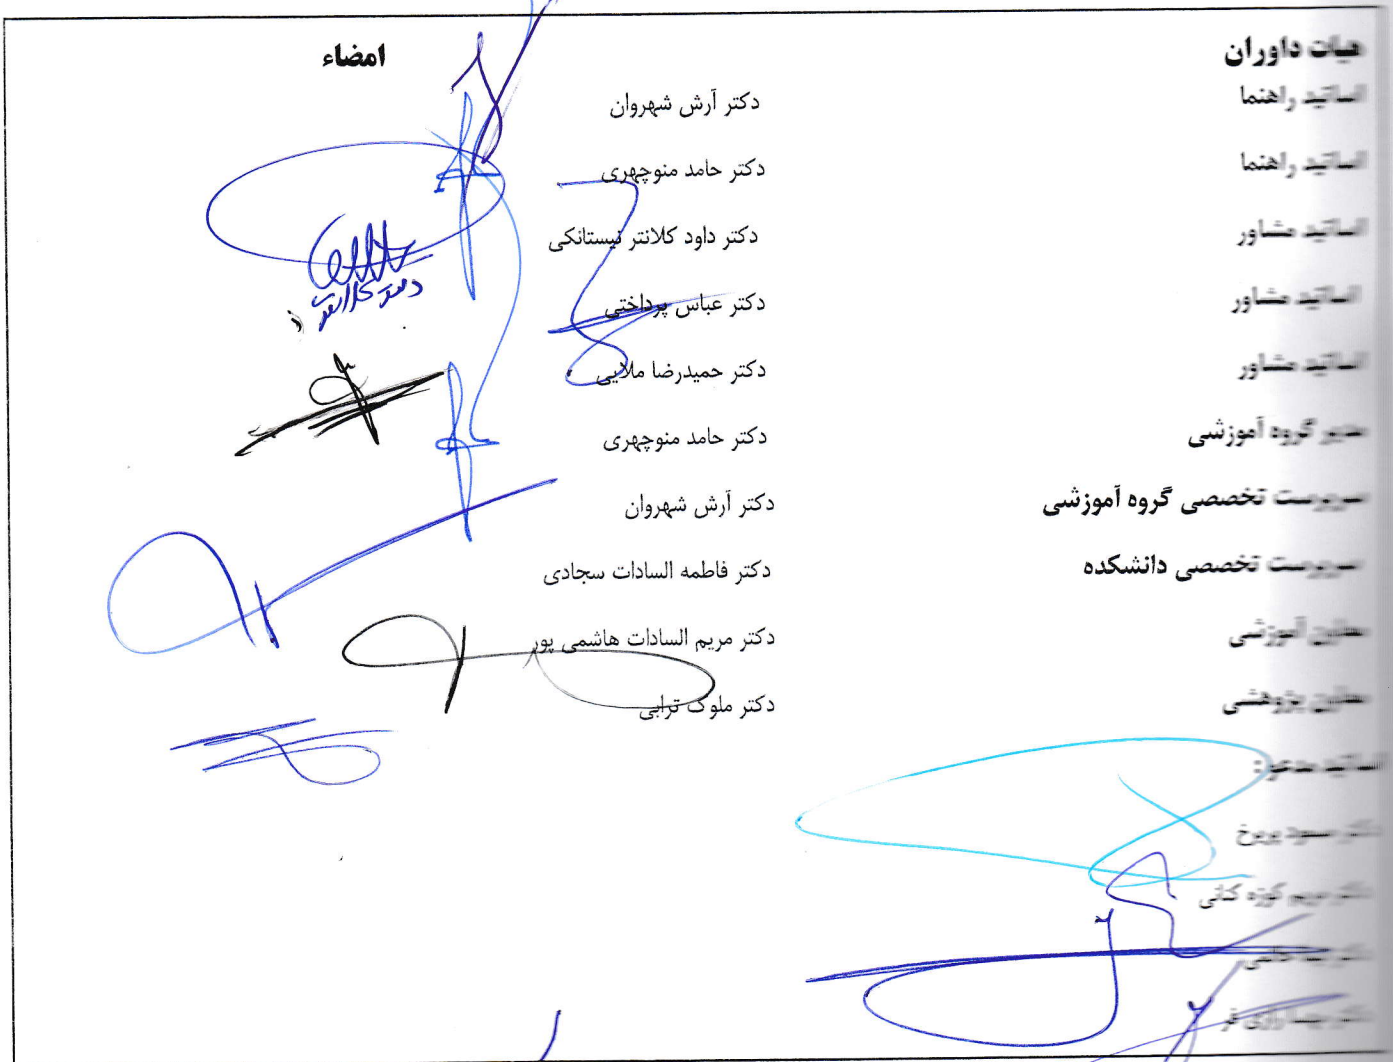 هیات داوران امضاء
اساتید راهنما دکتر آرش شهروان
اساتید راهنما دکتر حامد منوچهری
اساتید مشاور دکتر داود کلانتر نیستانکی
دکتر کلانتر
اساتید مشاور دکتر عباس پرداختی
اساتید مشاور دکتر حمیدرضا ملایی
مدیر گروه آموزشی دکتر حامد منوچهری
سرپرست تخصصی گروه آموزشی دکتر آرش شهروان
سرپرست تخصصی دانشکده دکتر فاطمه السادات سجادی
معاون آموزشی دکتر مریم السادات هاشمی پور
معاون پژوهشی دکتر ملوک ترابی
اساتید مدعو :
دکتر مسعود پریرخ
دکتر مریم کوزه کنانی
دکتر
دکتر